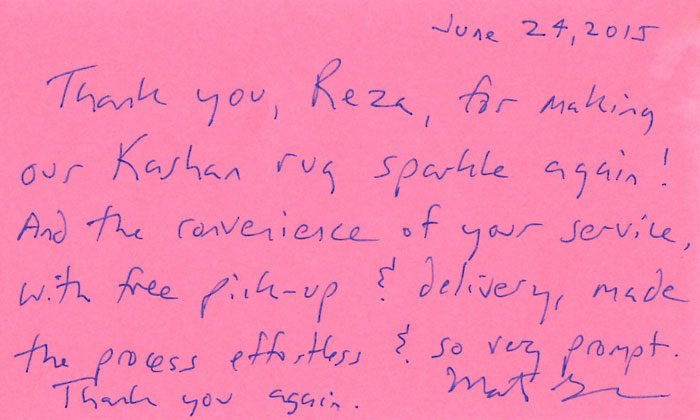 June 24, 2015
Thank you, Reza, for making
our Kashan rug sparkle again!
And the convenience of your service,
with free pick-up & delivery, made
the process effortless & so very prompt.
Thank you again.